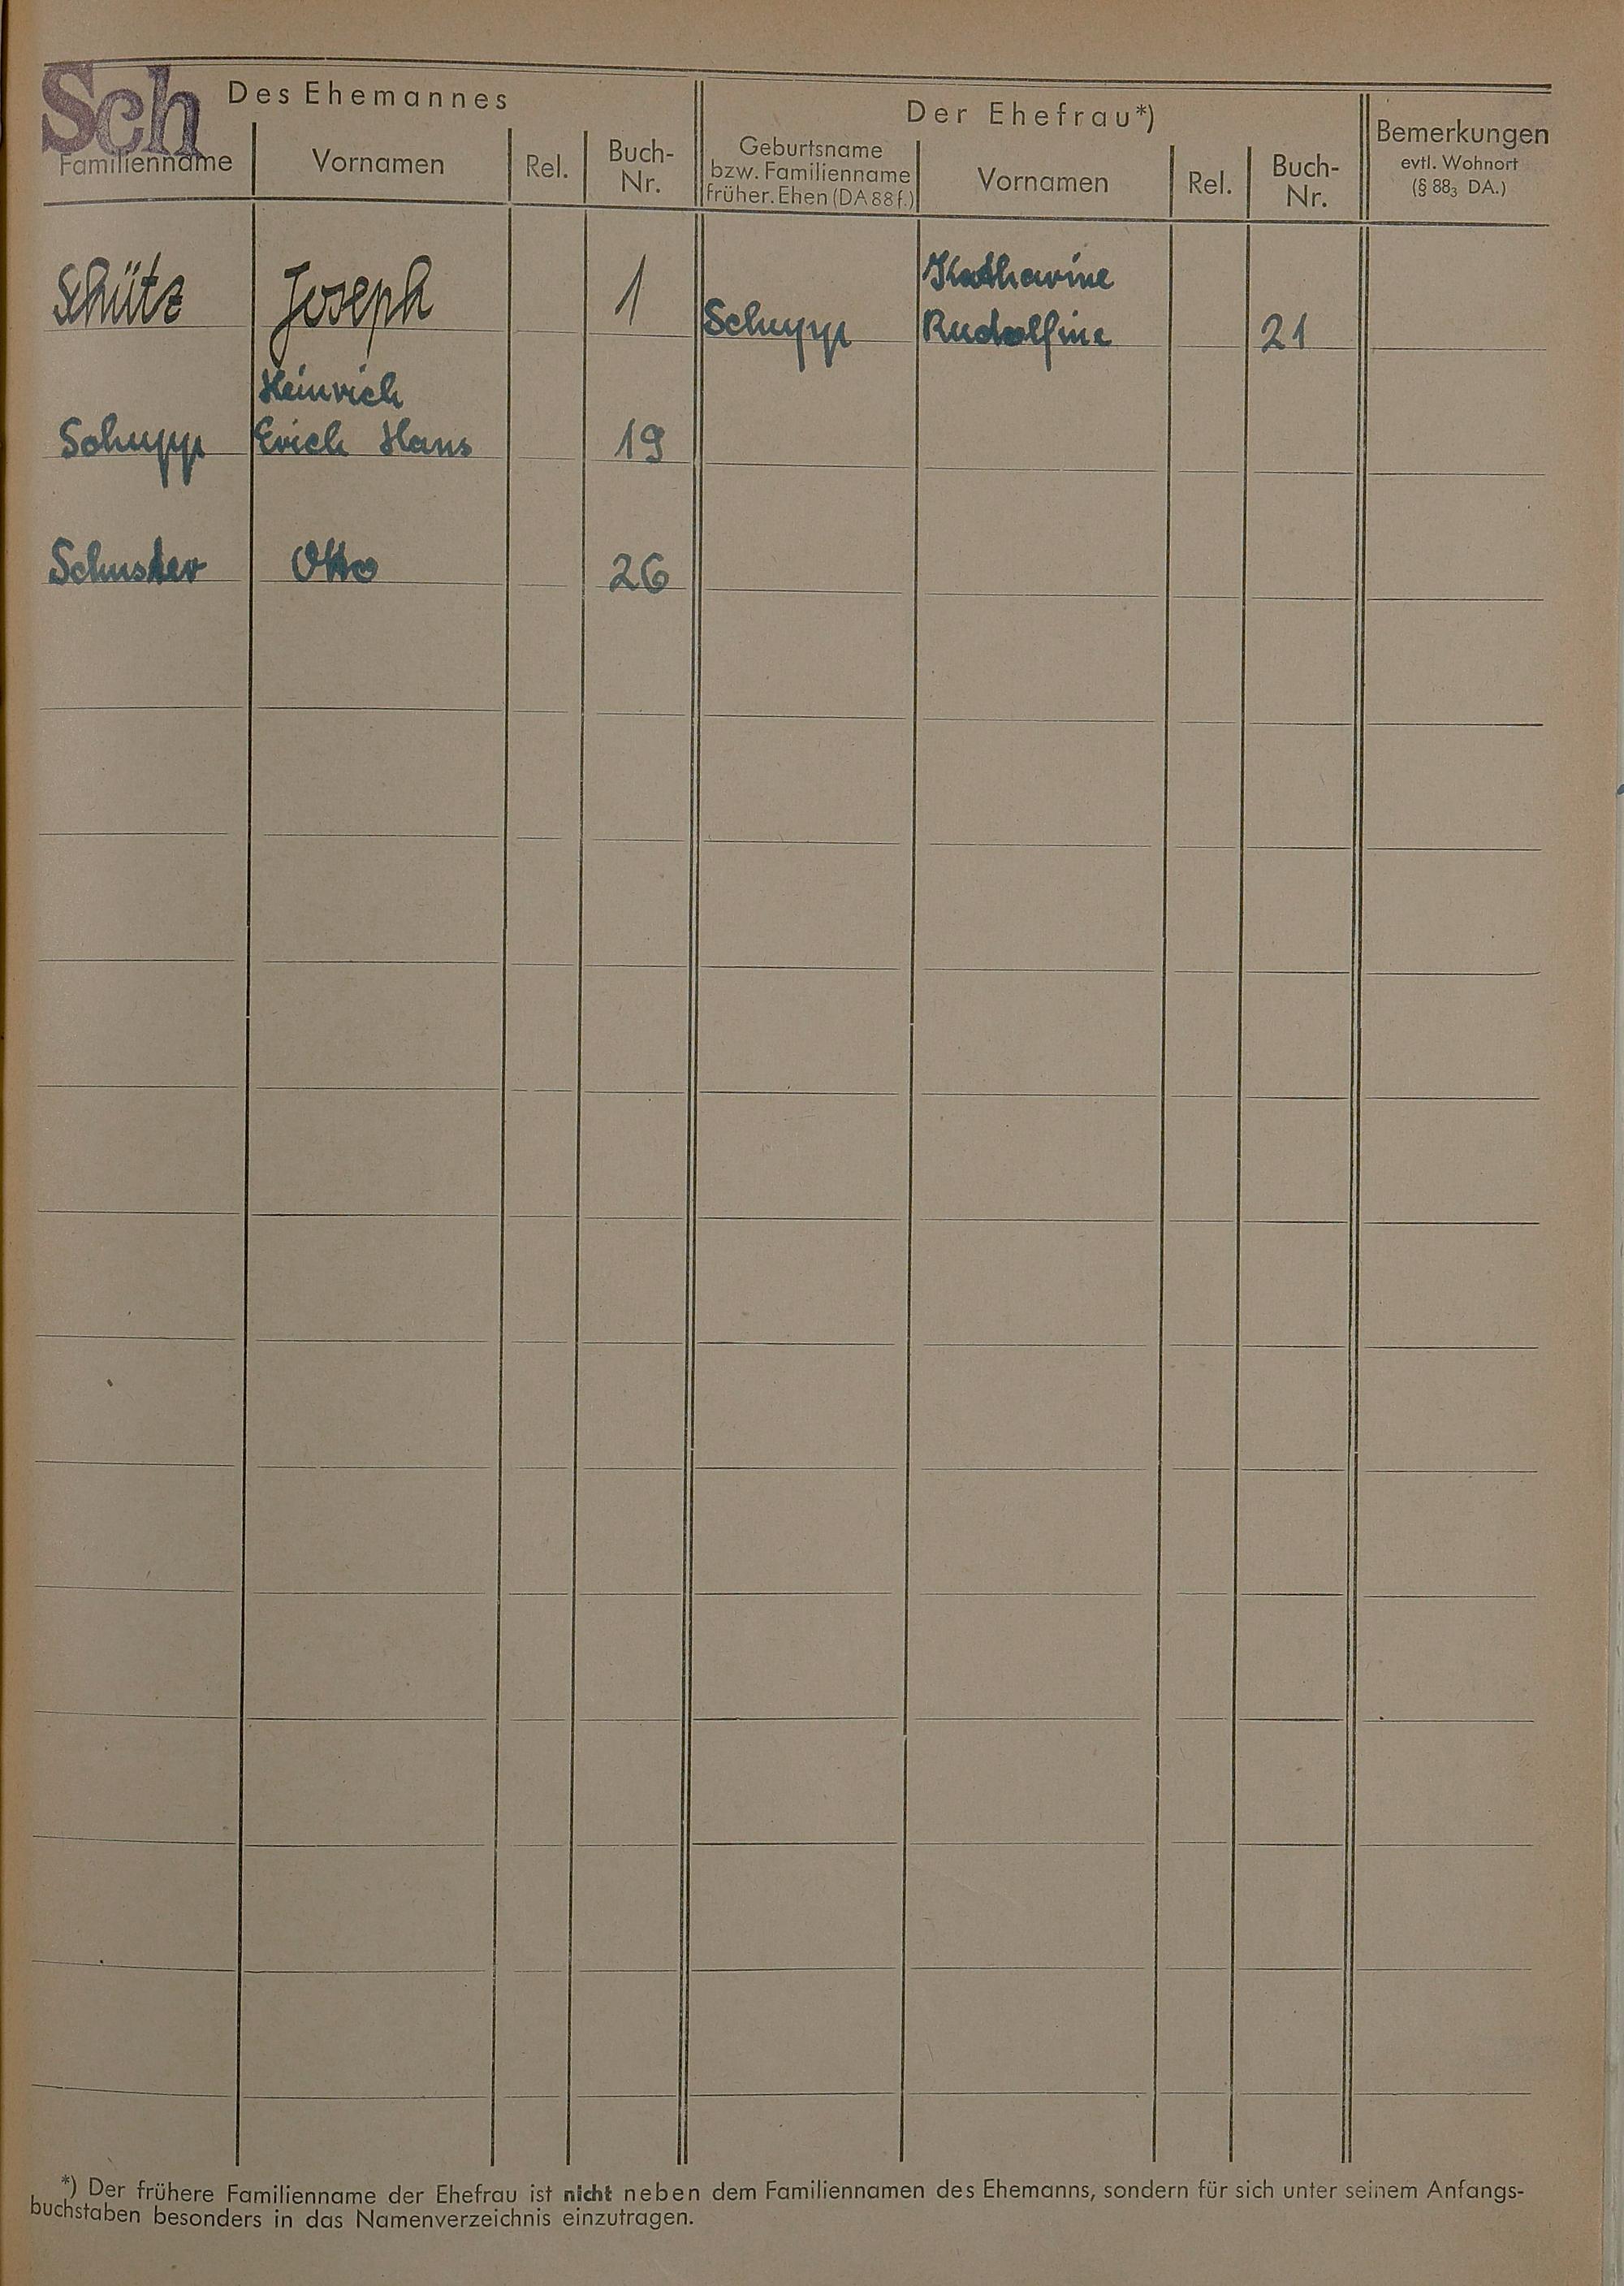 Sch
Des Ehemannes
Der Ehefrau*)
Bemerkungen
evtl. Wohnort
(§ 88₃ DA.)
Familienname
Vornamen
Rel.
Buch-
Nr.
Geburtsname
bzw. Familienname
früher. Ehen (DA 88 f.)
Vornamen
Rel.
Buch-
Nr.
Schütz Joseph 1
Katharine
Schupp Rudolfine 21
Heinrich
Schupp Erich Hans 19
Schuster Otto 26
*) Der frühere Familienname der Ehefrau ist nicht neben dem Familiennamen des Ehemanns, sondern für sich unter seinem Anfangs-
buchstaben besonders in das Namenverzeichnis einzutragen.